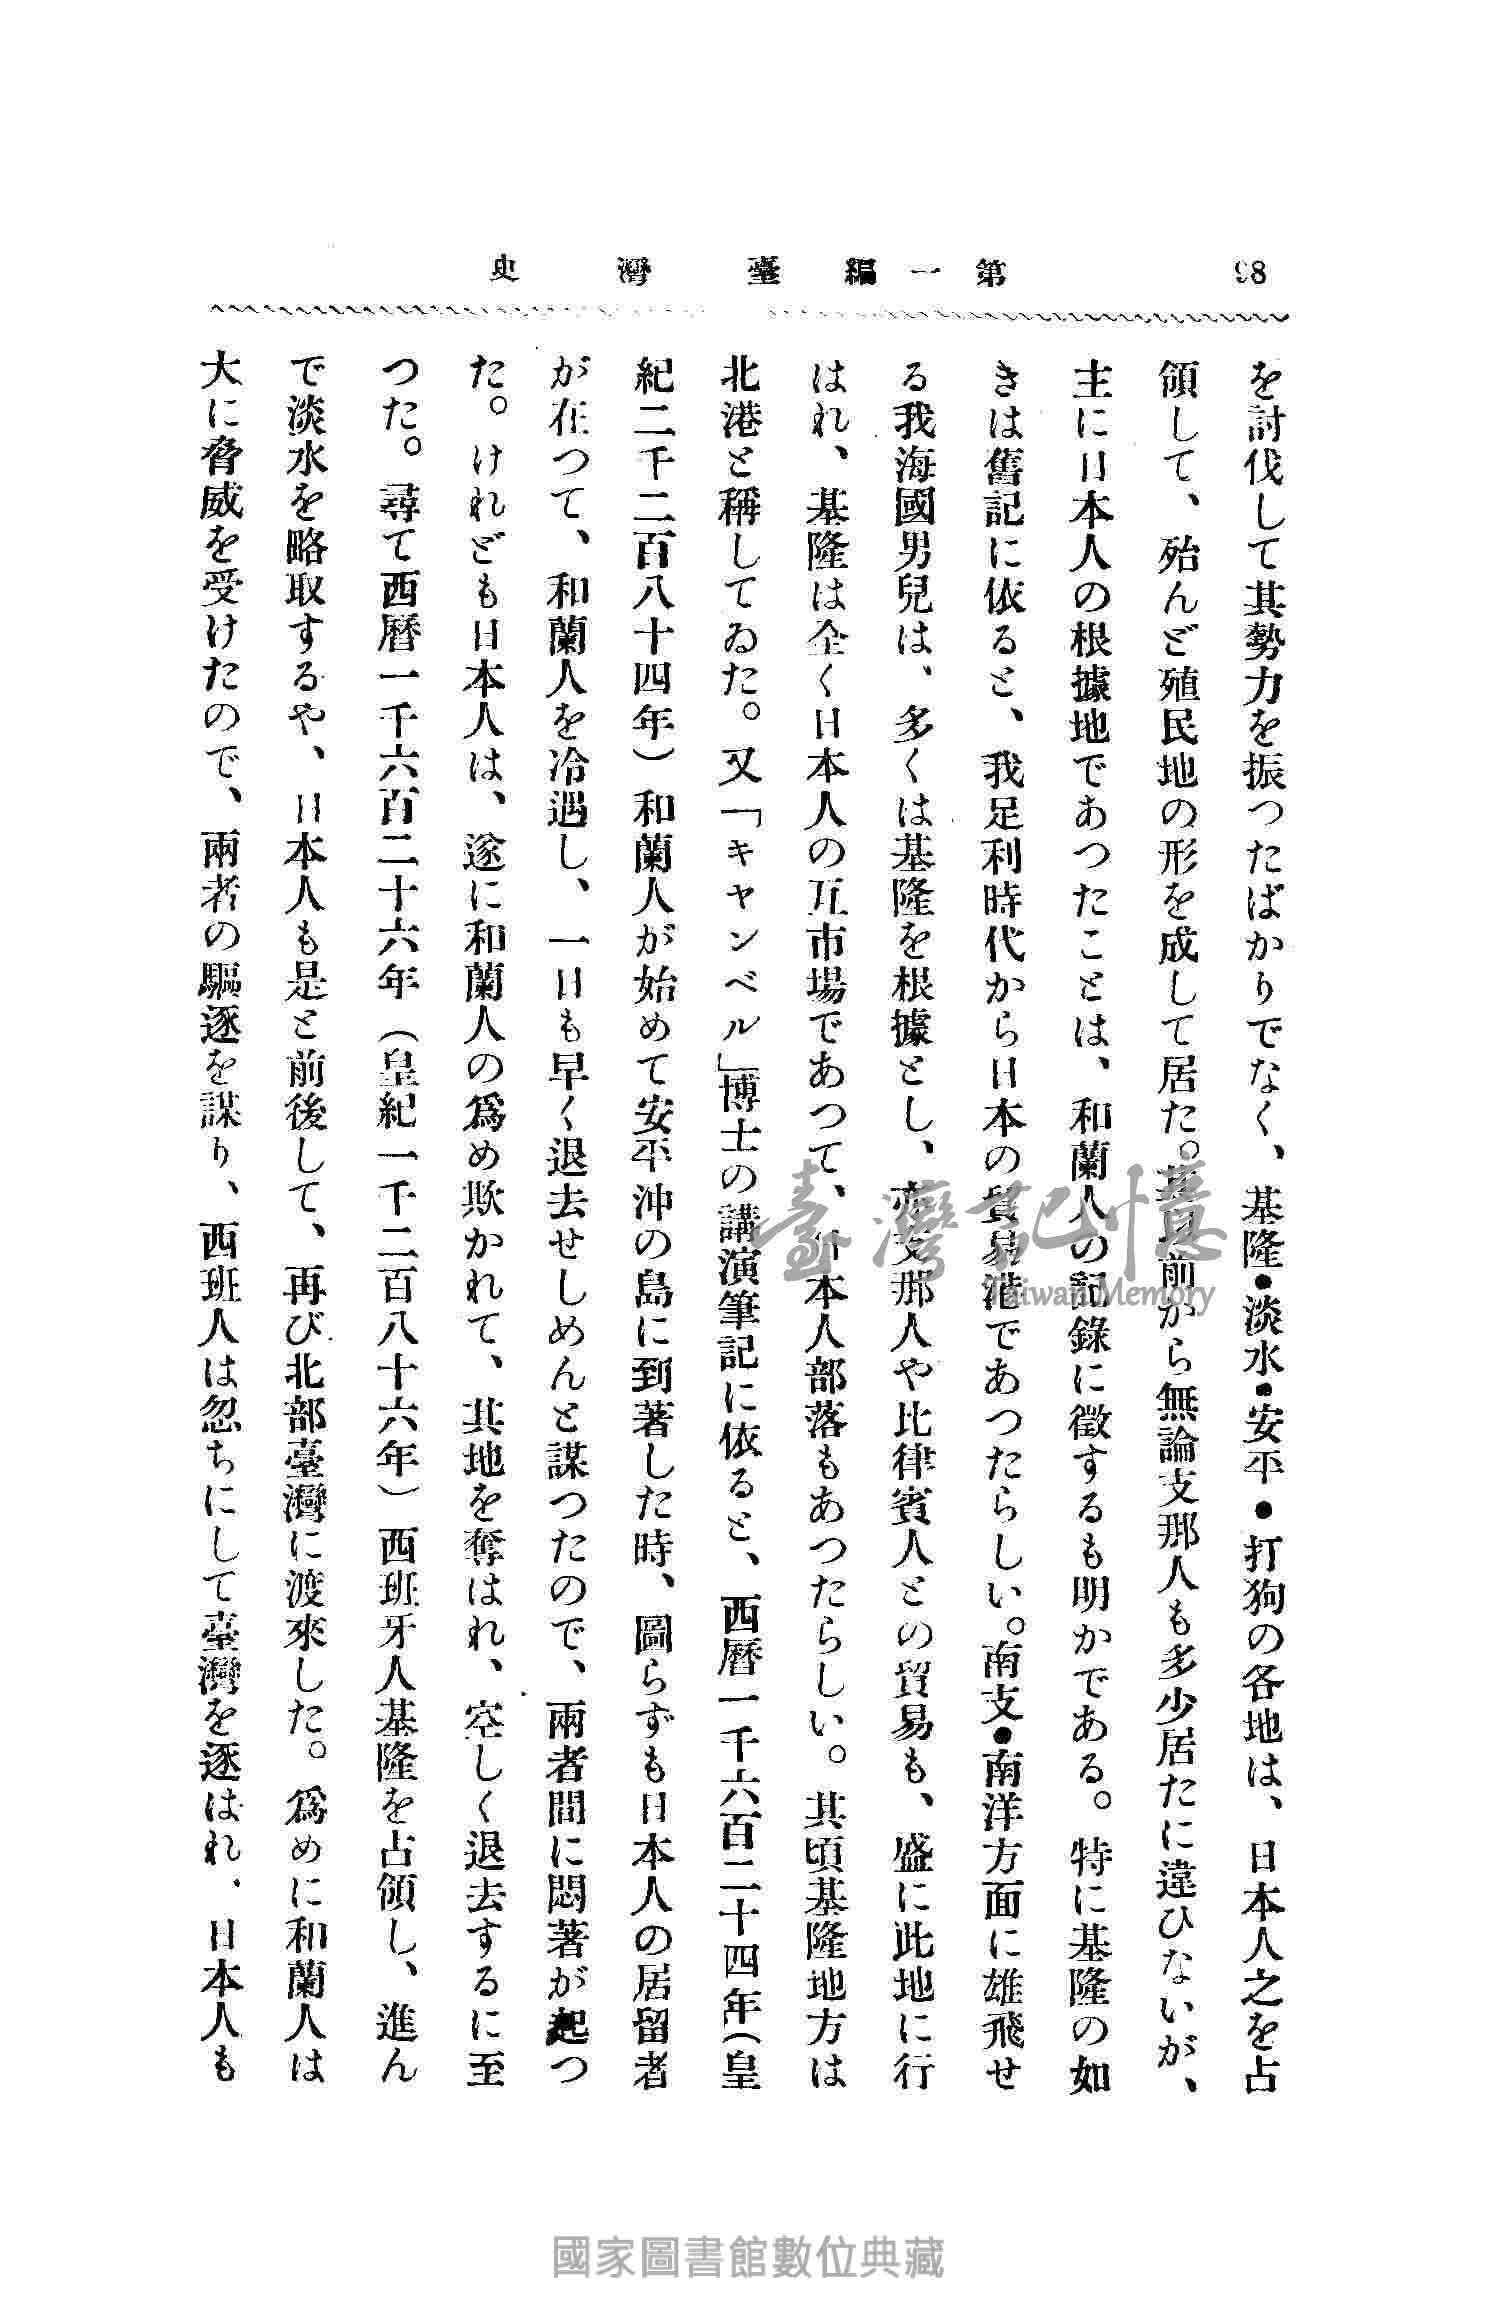 98
第一編臺灣史
を討伐して其勢力を振つたばかりでなく、基隆•淡水•安平•打狗の各地は、日本人之を占
領して、殆んど殖民地の形を成して居た。其以前から無論支那人も多少居たに違ひないが、
主に日本人の根據地であつたことは、和蘭人の記錄に徵するも明かである。特に基隆の如
きは舊記に依ると、我足利時代から日本の貿易港であつたらしい。南支•南洋方面に雄飛せ
る我海國男兒は、多くは基隆を根據とし、亦支那人や比律賓人との貿易も、盛に此地に行
はれ、基隆は全く日本人の互市場であつて、日本人部落もあつたらしい。其頃基隆地方は
北港と稱してゐた。又「キャンベル」博士の講演筆記に依ると、西曆一千六百二十四年(皇
紀二千二百八十四年)和蘭人が始めて安平沖の島に到著した時、圖らずも日本人の居留者
が在つて、和蘭人を冷遇し、一日も早く退去せしめんと謀つたので、兩者間に悶著が起つ
た。けれども日本人は、遂に和蘭人の爲め欺かれて、其地を奪はれ、空しく退去するに至
つた。尋て西曆一千六百二十六年(皇紀一千二百八十六年)西班牙人基隆を占領し、進ん
で淡水を略取するや、日本人も是と前後して、再び北部臺灣に渡來した。爲めに和蘭人は
大に脅威を受けたので、兩者の驅逐を謀り、西班人は忽ちにして臺灣を逐はれ、日本人も
臺灣記憶
Taiwan Memory
國家圖書館數位典藏